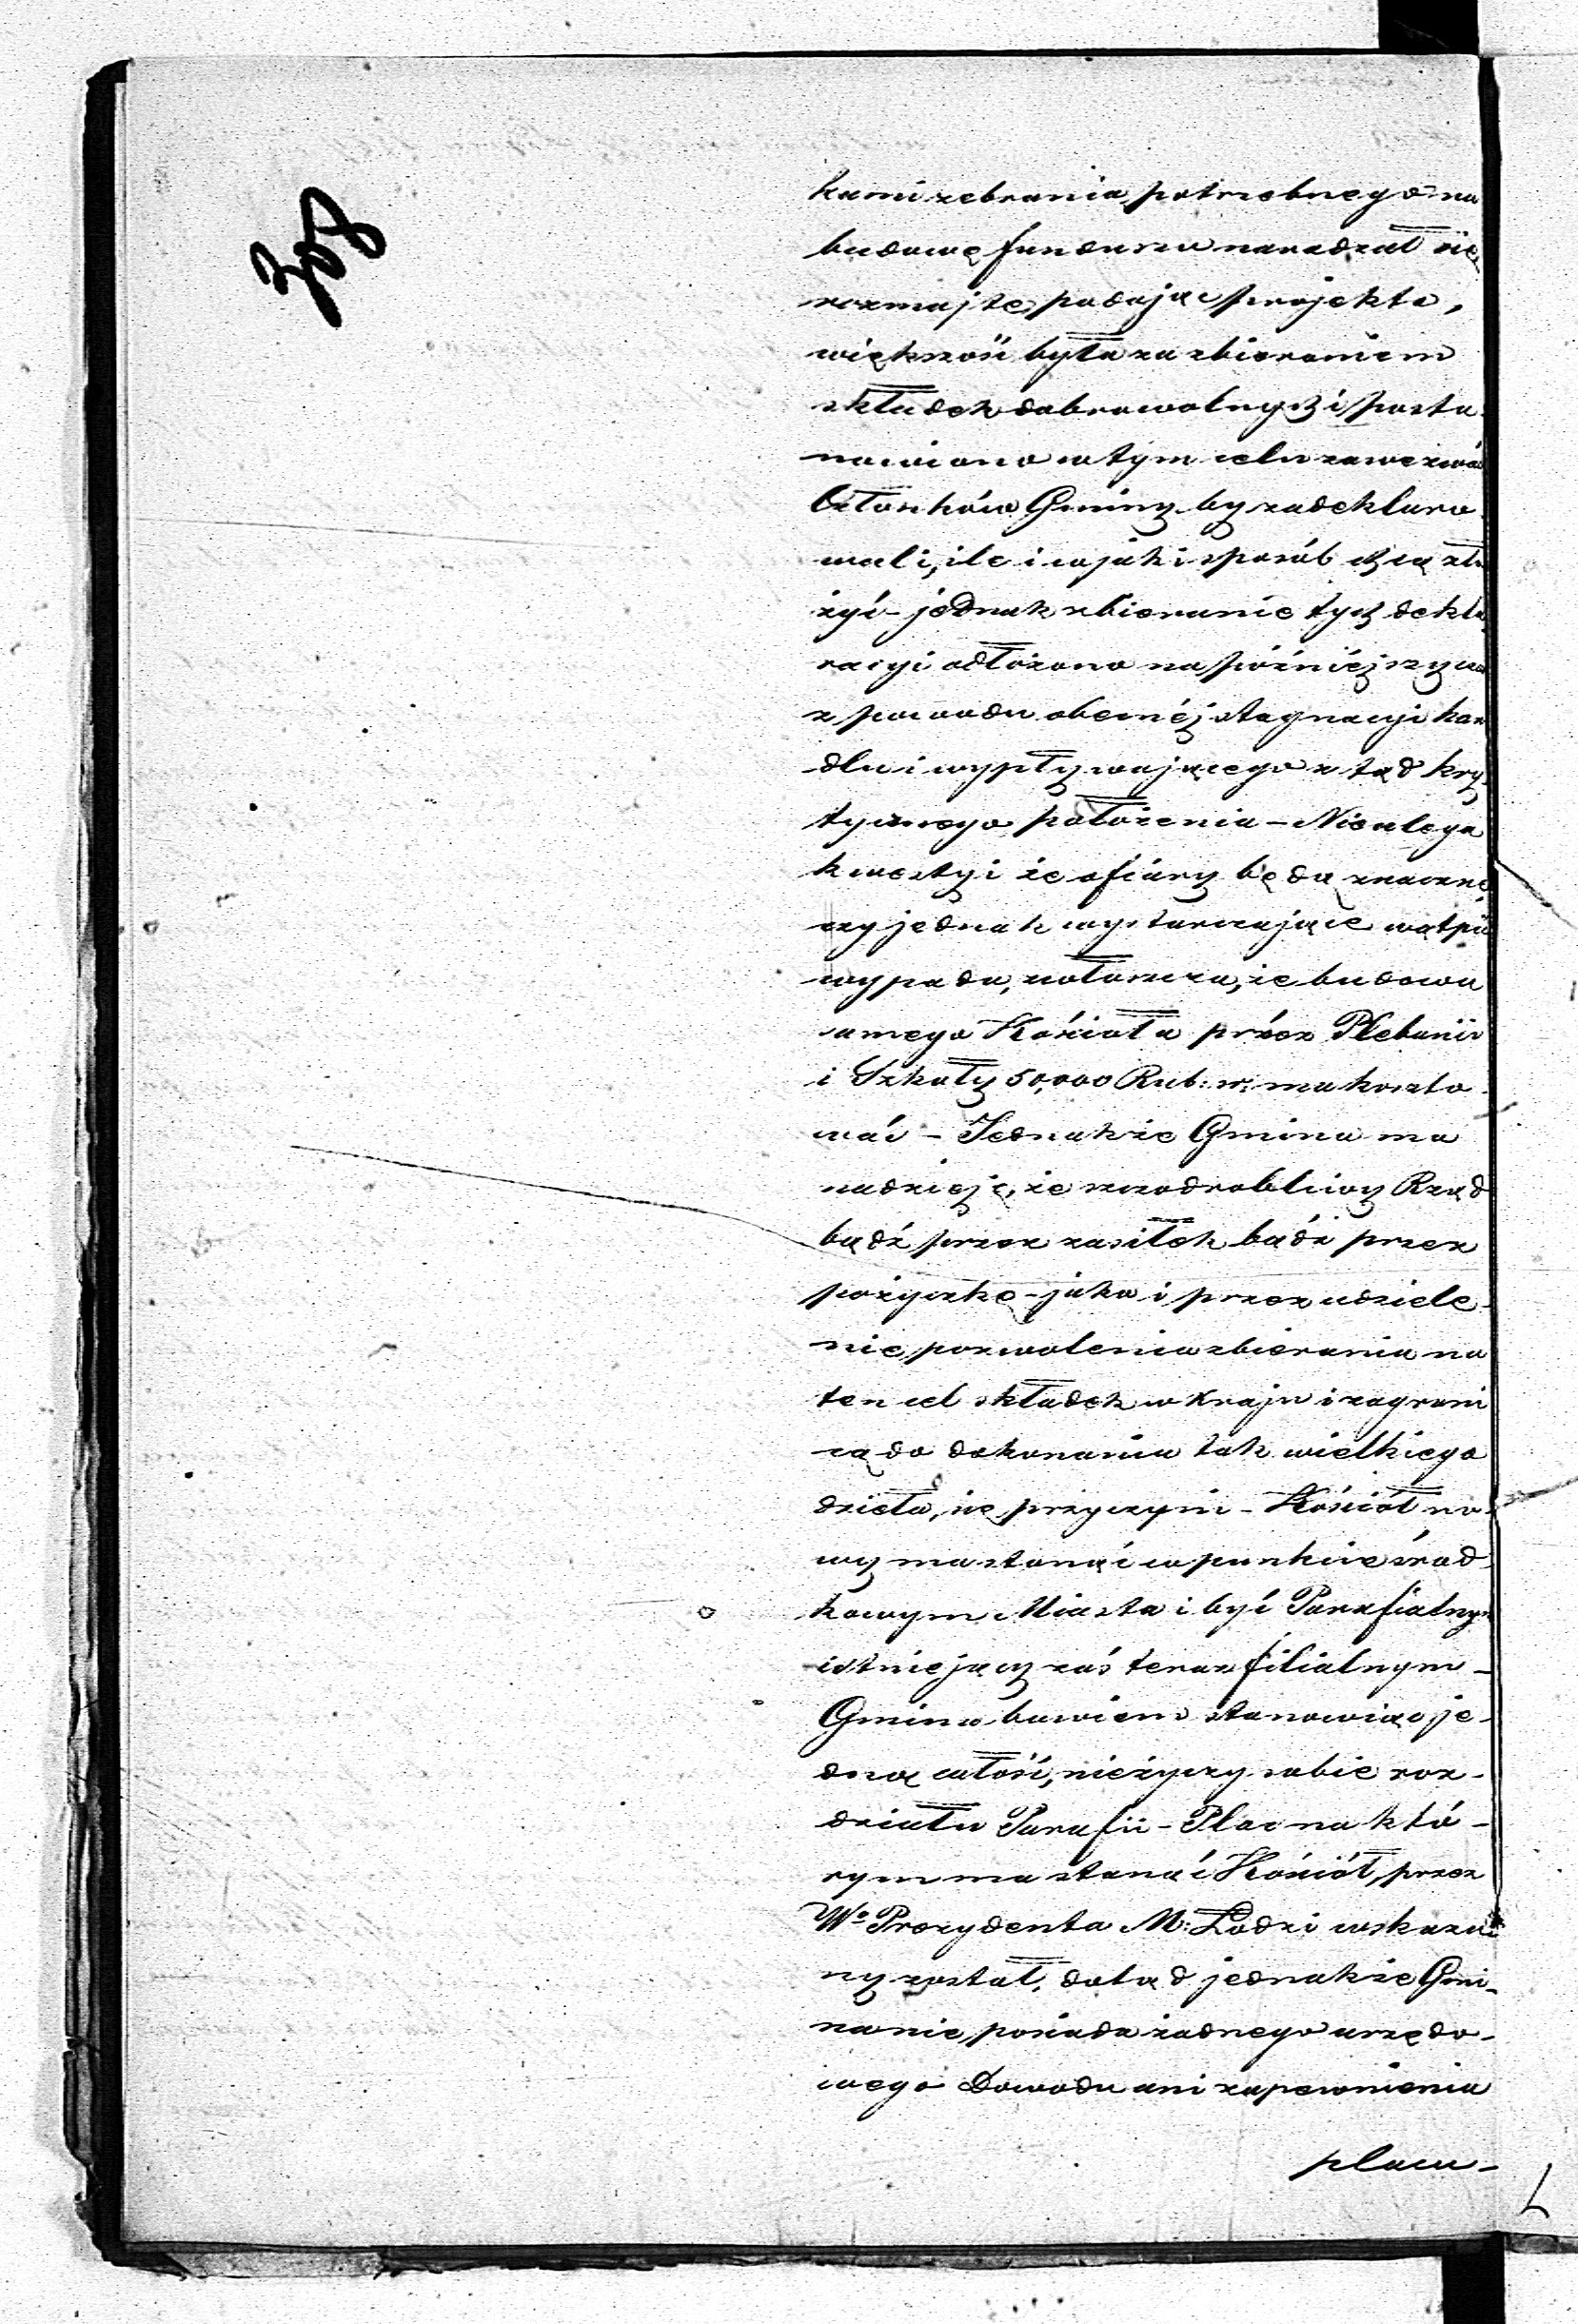 kami zebrania potrzebnego na
budowę funduszu naradzał się
rozmajte podając projekta,
większość była za zbieraniem
składek dobrowolnych i posta-
nowiono w tym celu zawezwać
Członków Gminy by zadeklaro-
wali, ile i w jaki sposób chcą zło
żyć - jednak zbieranie tych dekla
racyi odłożono na później
z powodu obecnéj stagnacyi han
dlu i wypływającego z tąd kry
tycznego położenia - Nieulega
kwestyi że ofiary będą znaczne
czy jednak wystarczające wątpić
wypada, zwłaszcza, że budowa
samego Kościoła prócz Plebanii
i Szkoły 50,000 Rub: sr: ma koszto-
wać - Jednakże Gmina ma
nadzieję, że szczodrobliwy Rząd
bądź przez zasiłek bądź przez
pożyczkę - jako i przez udziele-
nie pozwolenia zbierania na
ten cel składek w Kraju i zagrani
cą do dokonania tak wielkiego
dzieła, się przyczyni - Kościół no-
wy ma stanąć w punkcie środ
kowym Miasta i być Parafialnym
istniejący zaś teraz filialnym -
Gmina bowiem stanowiąc je-
dną całość, nieżyczy sobie roz-
działu Parafii - Plac na któ-
rym ma stanąć Kościół, przez
Wº Prezydenta M: Łodzi wskaza
ny został, dotąd jednakże Gmi-
na nie posiada żadnego urzędo-
wego Dowodu ani zapewnienia
placu -